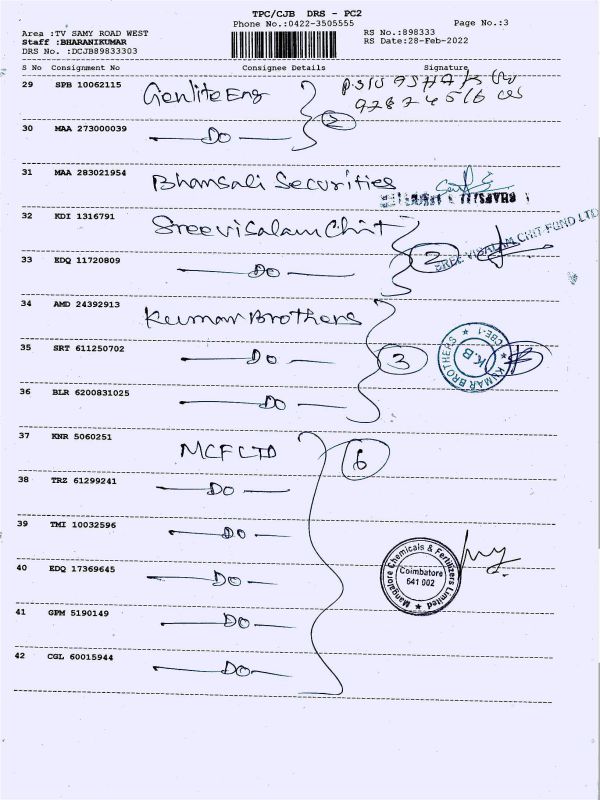 TPC/CJB DRS - PC2
Phone No.:0422-3505555
Page No.:3
Area :TV SAMY ROAD WEST
RS No.:898333
Staff :BHARANIKUMAR
RS Date:28-Feb-2022
DRS No. :DCJB89833303
S No Consignment No Consignee Details Signature
29 SPB 10062115 Genlite Eng
30 MAA 273000039 Do 2
31 MAA 283021954 Bhansali Securities
32 KDI 1316791 Sree visalam Chit
SREE VISALAM CHIT FUND LTD
33 EDQ 11720809 Do 2
34 AMD 24392913 Kumar Brothers
35 SRT 611250702 Do 3
KUMAR BROTHERS
K.B
CBE-1
36 BLR 6200831025 Do
37 KNR 5060251 MCF LTD 6
38 TRZ 61299241 Do
39 TMI 10032596 Do
Mangalore Chemicals & Fertilizers Limited
Coimbatore
641 002
40 EDQ 17369645 Do
41 GPM 5190149 Do
42 CGL 60015944 Do